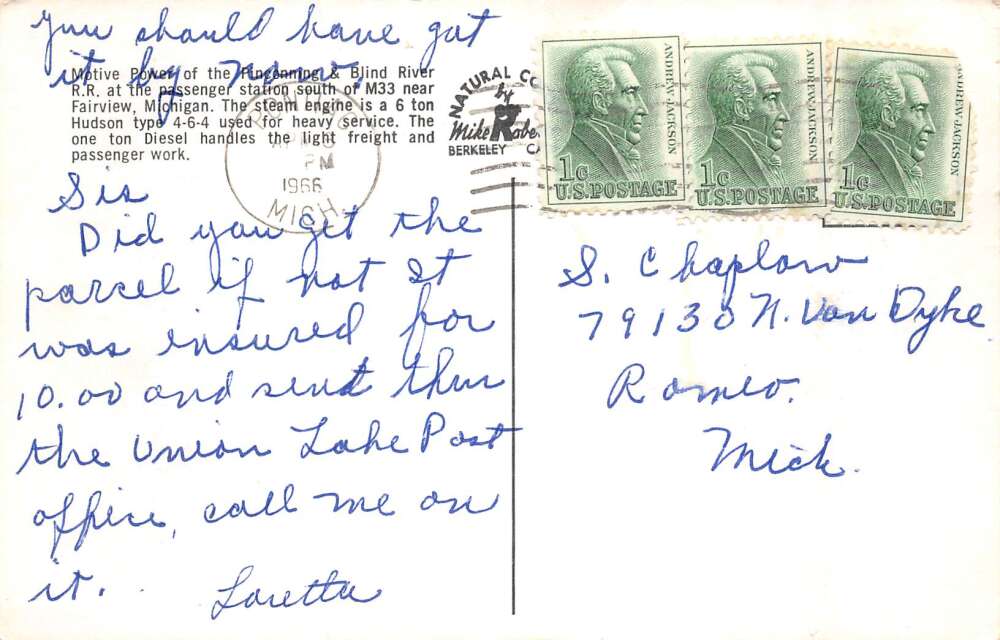 you should have got
it by now
Motive Power of the Pinconning & Blind River
R.R. at the passenger station south of M33 near
Fairview, Michigan. The steam engine is a 6 ton
Hudson type 4-6-4 used for heavy service. The
one ton Diesel handles the light freight and
passenger work.
NATURAL CO
by
Mike Robe
BERKELEY CA
PM
1966
MICH.
1c
U.S. POSTAGE
ANDREW JACKSON
1c
U.S. POSTAGE
ANDREW JACKSON
1c
U.S. POSTAGE
ANDREW JACKSON
Sis
Did you get the
parcel if not It
was insured for
10.00 and send thru
the Union Lake Post
office, call me on
it.
Loretta
S. Chaplow
79130 N. Van Dyke
Romeo.
Mich.